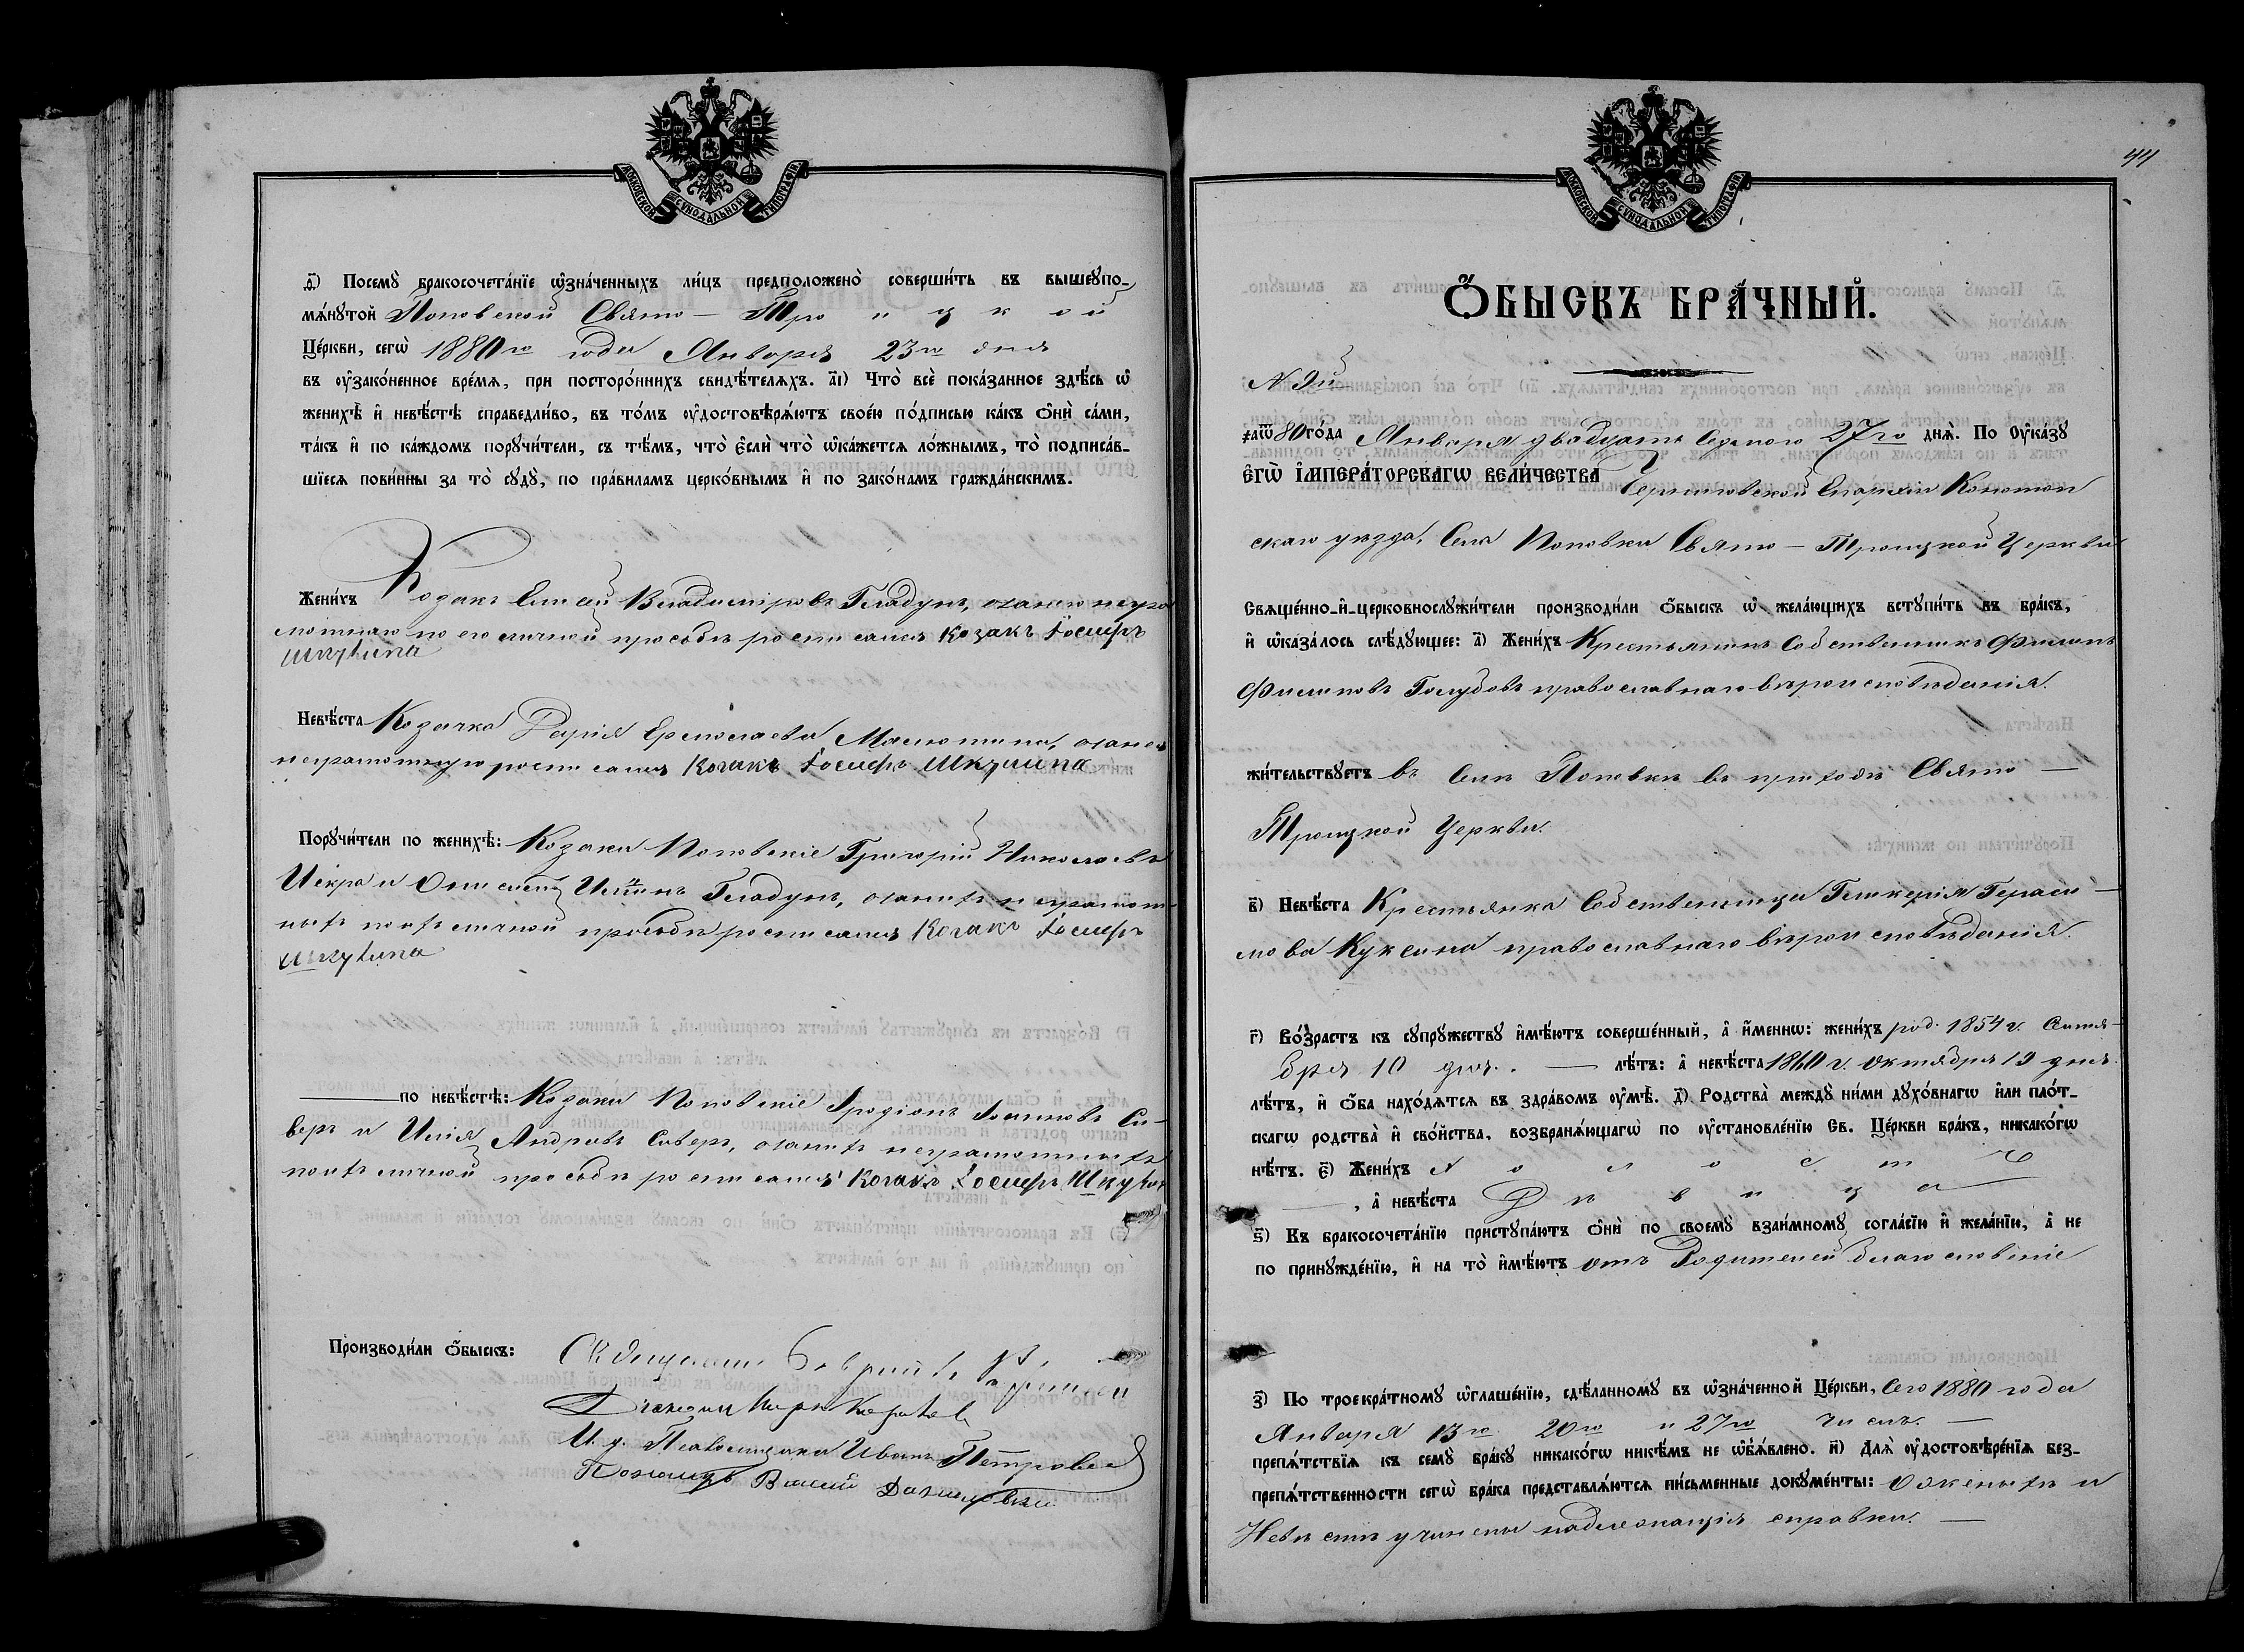 МОСКОВСКОЙ СѴНОДАЛЬНОЙ ТИПОГРАФІИ
д҃) Посемꙋ̀ бракосочета́нїе ѡ҆зна́ченныхъ ли́цъ предположено̀ соверши́ть въ вышеꙋпо-
мѧ́нꙋтой Поповской Свято — Троицкой
Це́ркви, сегѡ̀ 1880го года Января 23го дня
въ ᲂу҆зако́ненное вре́мѧ, при посторо́ннихъ свидѣ́телѧхъ. а҃і) Что̀ всѐ пока́занное здѣ́сь ѡ҆
женихѣ̀ и҆ невѣ́стѣ справедли́во, въ то́мъ ᲂу҆достовѣрѧ́ютъ свое́ю по́дписью ка́къ ѻ҆нѝ са́ми,
та́къ и҆ по ка́ждомъ порꙋчи́тели, съ тѣ́мъ, что̀ є҆слѝ что̀ ѡ҆ка́жетсѧ ло́жнымъ, то̀ подписа́в-
шїесѧ пови́нны за то̀ сꙋдꙋ̀, по пра́виламъ церко́внымъ и҆ по зако́намъ гражда́нскимъ.
Жени́хъ Козакъ Елисей Владиміровъ Гладунъ, а за него негра
мотнаго по его личной прозьбѣ росписался Козакъ Іосифъ
Шкулипа
Невѣ́ста Козачка Дарія Ермолаева, а за нея
неграмотную росписался Козакъ Іосифъ Шкулипа
Порꙋчи́тели по женихѣ̀: Козаки Поповскіе Григорій Николаевъ
Искра и Гладунъ, а за нихъ неграмот-
ныхъ по ихъ личной прозьбѣ росписался Козакъ Іосифъ
Шкулипа
по невѣ́стѣ: Козаки Поповскіе Иродіонъ Іоанновъ Си-
веръ и Илія Андреевъ Сиверъ, а за нихъ неграмотныхъ
по ихъ личной прозьбѣ росписался Козакъ Іосифъ Шкулипа
Производи́ли ѻ҆́быскъ: Священникъ
Діаконъ
И. д. Псаломщика Иванъ Петровскій
44
МОСКОВСКОЙ СѴНОДАЛЬНОЙ ТИПОГРАФІИ
Ѻ҆́БЫСКЪ БРА́ЧНЫЙ.
№ 9й
҂аѿ80 го́да Января двадцать седьмого 27го днѧ̀. По Оу҆ка́зꙋ
Є҆ГѠ̀ І҆МПЕРА́ТОРСКАГѠ ВЕЛИ́ЧЕСТВА Черниговской Епархіи Конотоп
скаго уѣзда, Села Поповки Свято — Троицкой Церкви
Свѧще́нно-и҆-церковнослꙋжи́тели производи́ли ѻ҆́быскъ ѡ҆ жела́ющихъ встꙋпи́ть въ бра́къ,
и҆ ѡ҆каза́лось слѣ́дꙋющее: а҃) Жени́хъ Крестьянинъ Собственникъ Филипъ
Филиповъ Голубовъ православнаго вѣроисповѣданія.
жи́тельствꙋетъ въ Селѣ Поповкѣ въ приходѣ Свято —
Троицкой Церкви.
в҃) Невѣ́ста Крестьянка Собственница Гликерія Гераси-
мова Куксина православнаго вѣроисповѣданія.
г҃) Во́зрастъ къ сꙋпрꙋ́жествꙋ и҆мѣ́ютъ соверше́нный, а҆ и҆́меннѡ: жени́хъ род. 1854 г. Сентя-
бря 10 дня. — лѣ́тъ: а҆ невѣ́ста 1860 г. Октября 19 дня.
лѣ́тъ, и҆ ѻ҆́ба нахо́дѧтсѧ въ здра́вомъ ᲂу҆мѣ̀. д҃) Родства̀ междꙋ̀ ни́ми дꙋхо́внагѡ и҆лѝ пло́т-
скагѡ родства̀ и҆ сво́йства, возбранѧ́ющагѡ по ᲂу҆становле́нїю Св. Це́ркви бра́къ, никако́гѡ
нѣ́тъ. є҃) Жени́хъ Холостъ
, а҆ невѣ́ста Дѣвица
ѕ҃) Къ бракосочета́нїю пристꙋпа́ютъ ѻ҆нѝ по своемꙋ̀ взаи́мномꙋ согла́сїю и҆ жела́нїю, а҆ не
по принꙋжде́нїю, и҆ на то̀ и҆мѣ́ютъ отъ Родителей благословеніе
з҃) По троекра́тномꙋ ѡ҆глаше́нїю, сдѣ́ланномꙋ въ ѡ҆зна́ченной Це́ркви, Сего 1880 года
Января 13го 20го и 27го числъ. —
препѧ́тствїѧ къ семꙋ̀ бра́кꙋ никако́гѡ никѣ́мъ не ѡ҆б̾ѧ́влено. и҃) Длѧ̀ ᲂу҆достовѣре́нїѧ без-
препѧ́тственности сегѡ̀ бра́ка представлѧ́ютсѧ пи́сьменные докꙋме́нты: О женихѣ и
Невѣстѣ учинены надлежащія справки. —